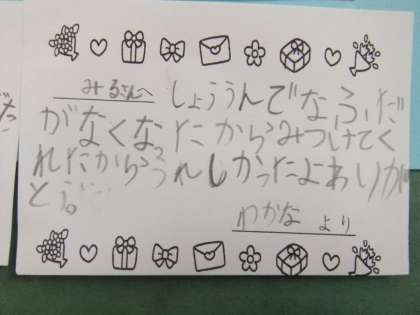 みるさんへ しょううんでなふだ
がなくなったからみつけてく
れたからうれしかったよありが
とう。
わかな より